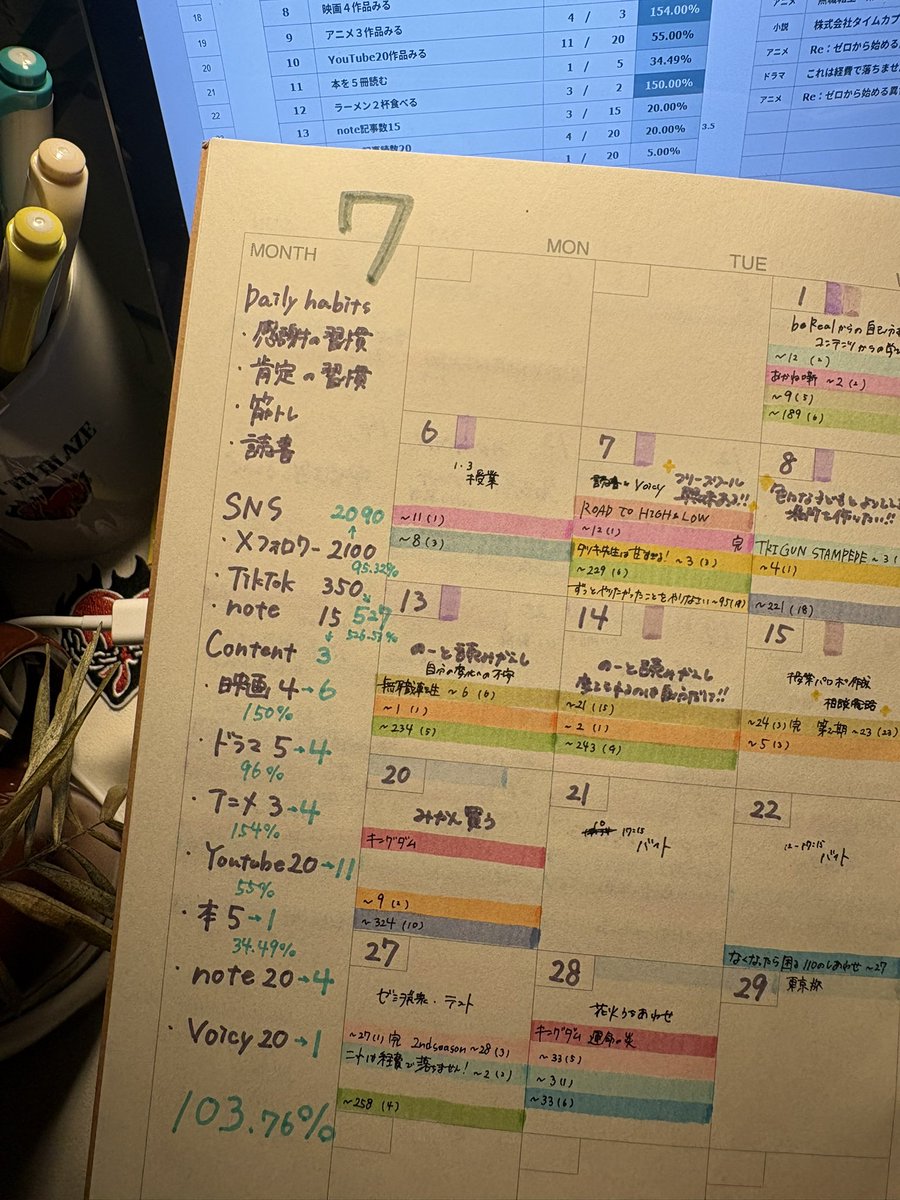 18
19
20
21
22
8 映画4作品みる 4 / 3 154.00%
9 アニメ3作品みる 11 / 20 55.00%
10 YouTube20作品みる 1 / 5 34.49%
11 本を5冊読む 3 / 2 150.00%
12 ラーメン2杯食べる 3 / 15 20.00%
13 note記事数15 4 / 20 20.00%
1 / 20 5.00%
3.5
アニメ
小説 株式会社タイムカプ
アニメ Re：ゼロから始める
ドラマ これは経費で落ちませ
アニメ Re：ゼロから始める異
RI BLAZE
7
MONTH
MON
TUE
Daily habits
・感謝の習慣
・肯定の習慣
・筋トレ
・読書
SNS 2090
・Xフォロワー 2100
95.32%
・TikTok 350
・note 15 527
526.57%
Content 3
・映画 4→6
150%
・ドラマ 5→4
96%
・アニメ 3→4
154%
・Youtube 20→11
55%
・本 5→1
34.49%
・note 20→4
・Voicy 20→1
103.76%
1
beRealからの自己
コンテンツからの
~12 (2)
あかね噺 ~2 (2)
~9 (5)
~189 (6)
6
1.3
授業
~11 (1)
~8 (3)
7
読書とVoicy フリースクール
興味ある!!
ROAD TO HIGH&LOW
~12 (1) 完
~3 (3)
~229 (6)
ずっとやりたかったことをやりなさい ~95 (18)
8
場所を作りたい!!
TRIGUN STAMPEDE ~3
~4 (1)
~221 (18)
13
のーと読みかえし
自分の変化への不安
無職転生 ~6 (6)
~1 (1)
~234 (5)
14
のーと読みかえし
~21 (15)
~2 (1)
~243 (9)
15
授業パワポ作成
~24 (3) 完 第2期 ~23 (23)
~5 (3)
20
みかん買う
キングダム
~9 (2)
~324 (10)
21
17:15
バイト
22
12-17:15
バイト
なくなったら困る110のしあわせ ~27
27
ゼミ発表・テスト
~27 (1) 完 2nd season ~28 (3)
これは経費で落ちません! ~2 (2)
~258 (4)
28
花火うちあわせ
キングダム 運命の炎
~33 (5)
~3 (1)
~33 (6)
29
東京旅